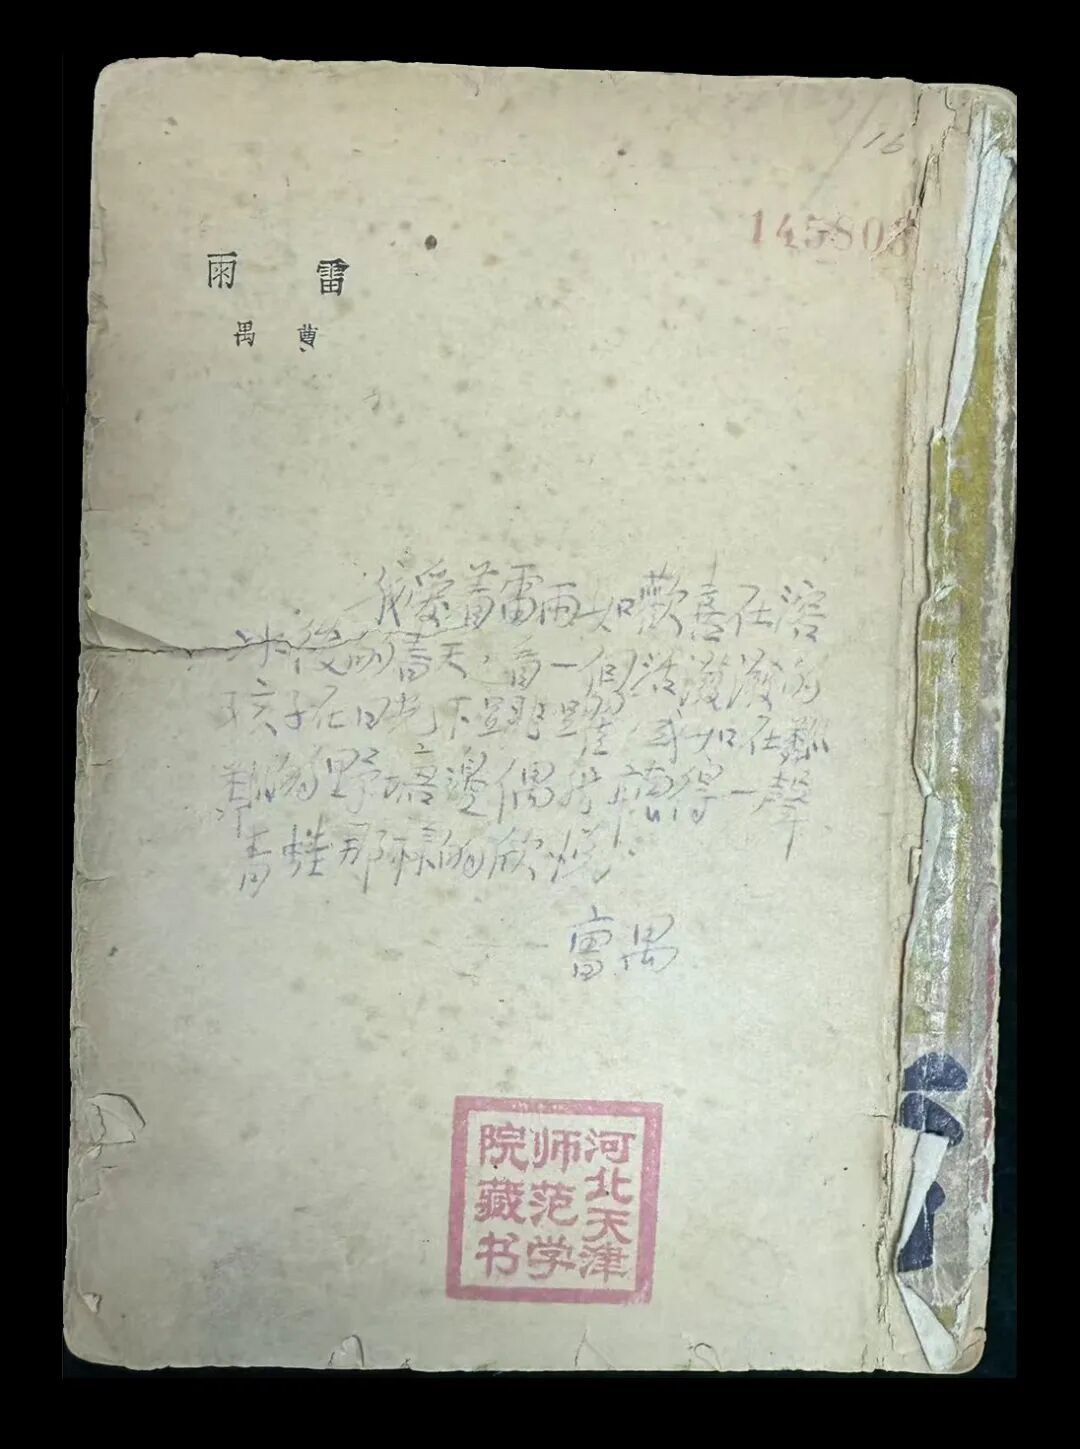 16
雷雨
曹禺
我愛著雷雨如歡喜在溶
冰後的春天,看一個活潑潑的
孩子在日光下跳躍,或如在粼
粼的野塘邊偶然聽得一聲
青蛙那樣的欣悅.
——曹禺
河北天津
师范学
院藏书